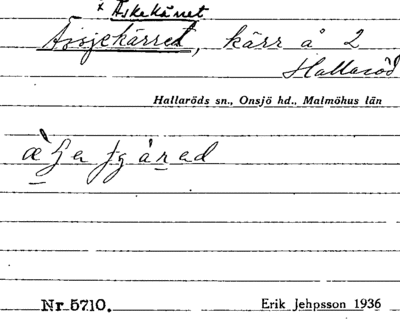 x Askekärret
Assjekärret, kärr å 2
Hallaröd
Hallaröds sn., Onsjö hd., Malmöhus län
Nr 5710.
Erik Jehpsson 1936